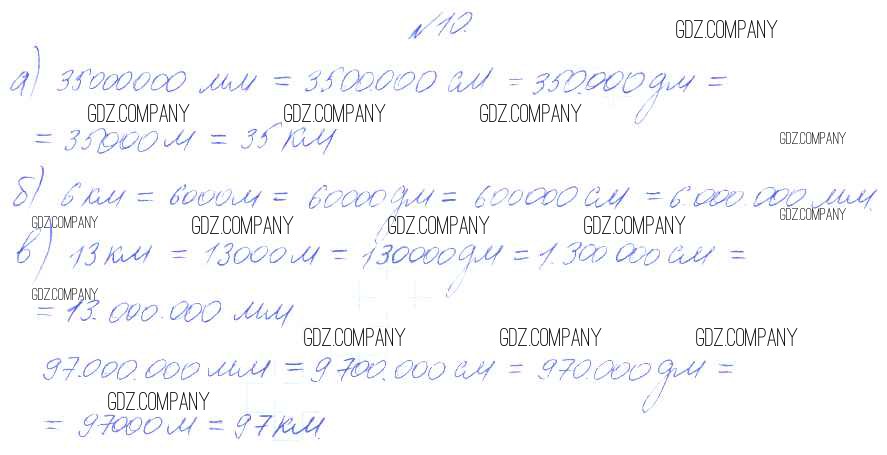 №10. GDZ.COMPANY
а) 35000000 мм = 3500000 см = 350.000 дм =
GDZ.COMPANY GDZ.COMPANY GDZ.COMPANY
= 35000 м = 35 км GDZ.COMPANY
б) 6 км = 6000 м = 60000 дм = 600000 см = 6.000.000 мм.
GDZ.COMPANY GDZ.COMPANY GDZ.COMPANY GDZ.COMPANY GDZ.COMPANY
в) 13 км = 13000 м = 130000 дм = 1.300 000 см =
GDZ.COMPANY
= 13.000.000 мм
GDZ.COMPANY GDZ.COMPANY GDZ.COMPANY
97.000.000 мм = 9 700.000 см = 970.000 дм =
GDZ.COMPANY
= 97000 м = 97 км.